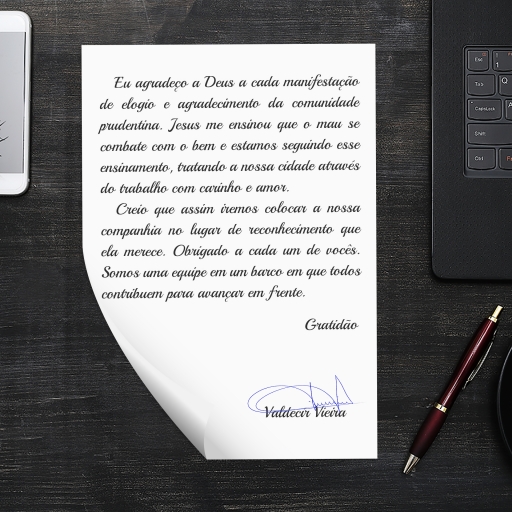 Eu agradeço a Deus a cada manifestação
de elogio e agradecimento da comunidade
prudentina. Jesus me ensinou que o mau se
combate com o bem e estamos seguindo esse
ensinamento, tratando a nossa cidade através
do trabalho com carinho e amor.
Creio que assim iremos colocar a nossa
companhia no lugar de reconhecimento que
ela merece. Obrigado a cada um de vocês.
Somos uma equipe em um barco em que todos
contribuem para avançar em frente.
Gratidão
Valdecir Vieira
Esc
1
Tab
Q
CapsLock
A
Shift
Ctrl
Fn